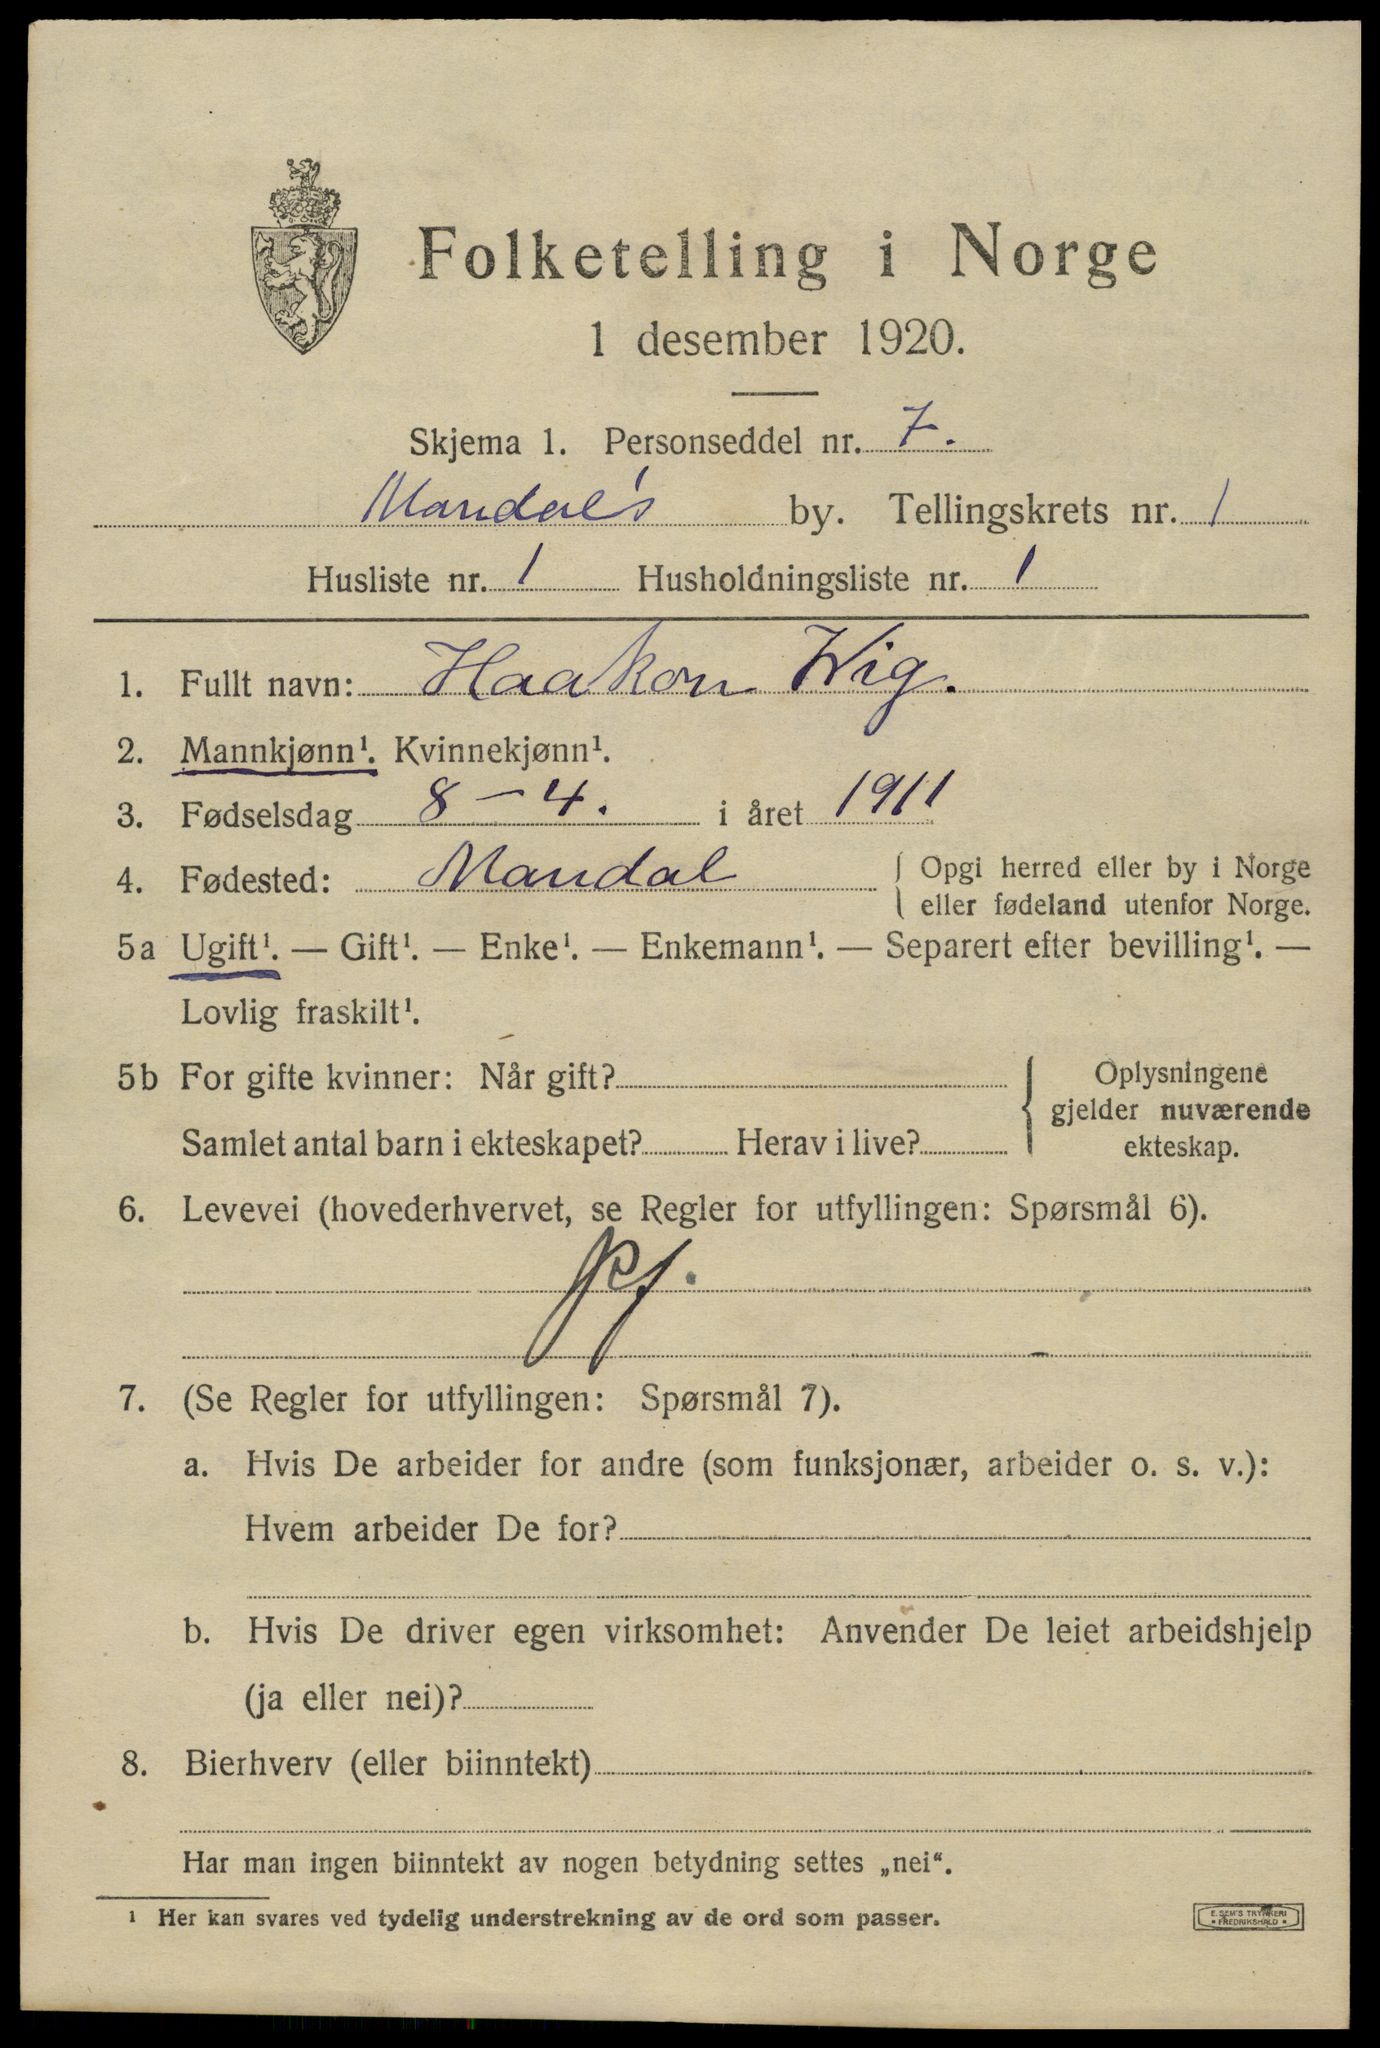 Folketelling i Norge
1 desember 1920.
Skjema 1. Personseddel nr. 7.
Mandal's by. Tellingskrets nr. 1
Husliste nr. 1 Husholdningsliste nr. 1
1. Fullt navn: Haakon Wig.
2. Mannkjønn¹. Kvinnekjønn¹.
3. Fødselsdag 8 – 4. i året 1911
4. Fødested: Mandal { Opgi herred eller by i Norge
eller fødeland utenfor Norge.
5a Ugift¹. — Gift¹. — Enke¹. — Enkemann¹. — Separert efter bevilling¹. —
Lovlig fraskilt¹.
5b For gifte kvinner: Når gift? { Oplysningene
gjelder nuværende
Samlet antal barn i ekteskapet? Herav i live? ekteskap.
6. Levevei (hovederhvervet, se Regler for utfyllingen: Spørsmål 6).
7. (Se Regler for utfyllingen: Spørsmål 7).
a. Hvis De arbeider for andre (som funksjonær, arbeider o. s. v.):
Hvem arbeider De for?
b. Hvis De driver egen virksomhet: Anvender De leiet arbeidshjelp
(ja eller nei)?
8. Bierhverv (eller biinntekt)
Har man ingen biinntekt av nogen betydning settes „nei“.
¹ Her kan svares ved tydelig understrekning av de ord som passer.
E. SEM'S TRYKKERI
• FREDRIKSHALD •